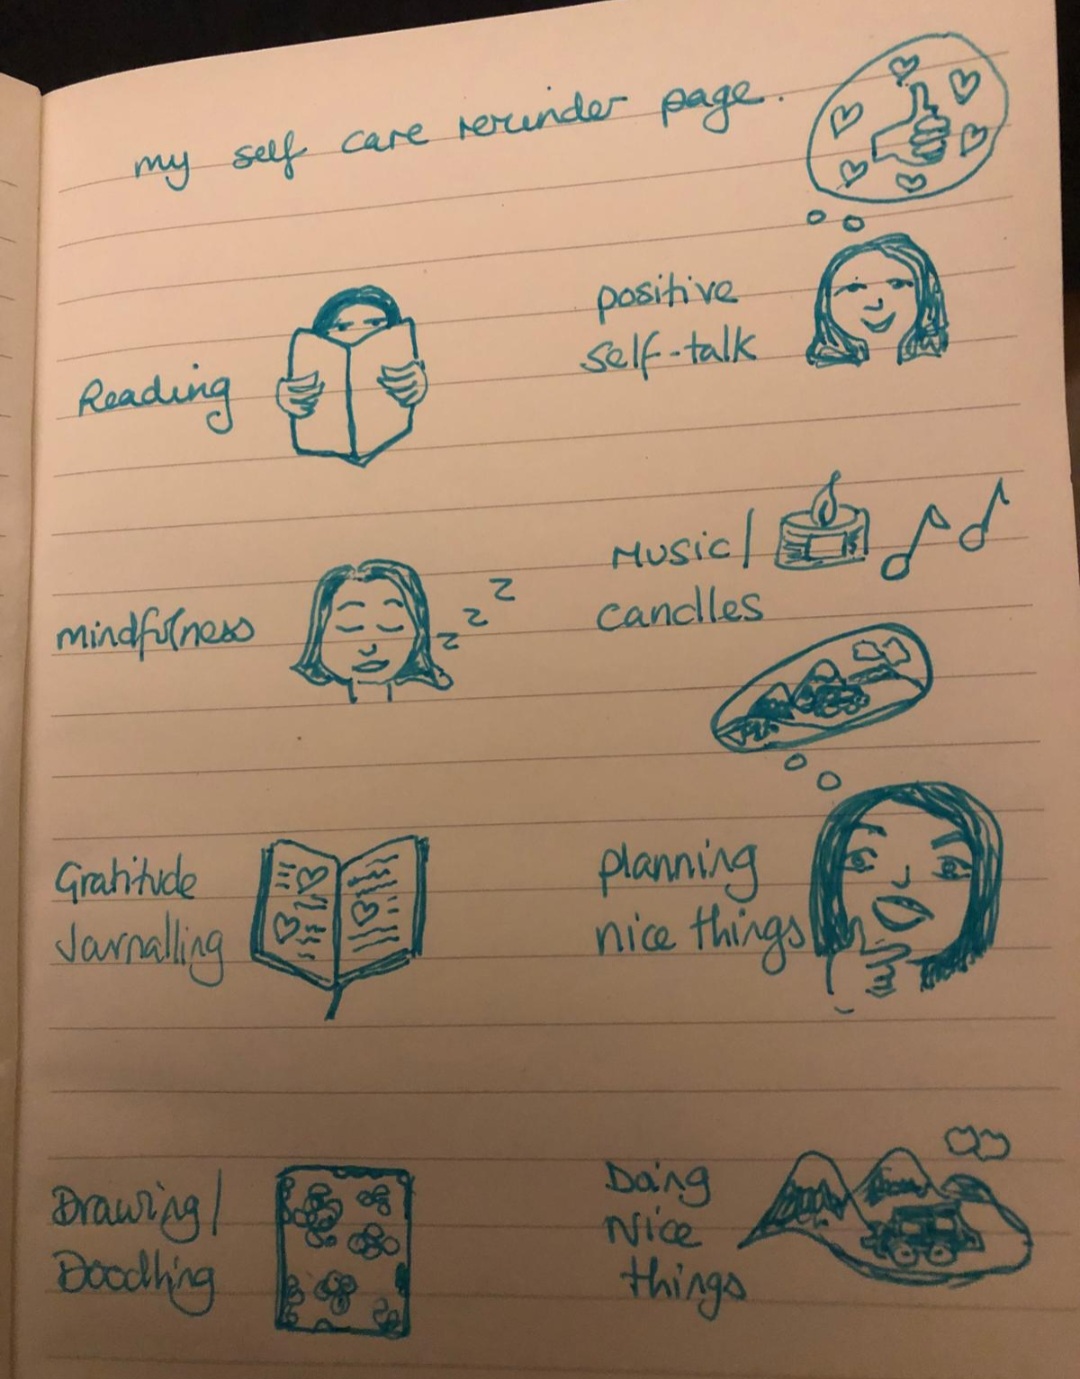 my self care reminder page.
Reading
positive
self-talk
mindfulness
z z z
Music/
candles
Gratitude
Journalling
planning
nice things
Drawing/
Doodling
Doing
Nice
things